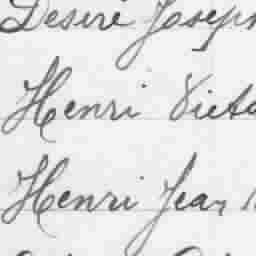 Desiré Joseph
Henri Victo
Henri Jean